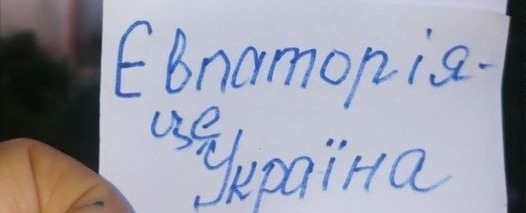 Євпаторія-
це
Україна